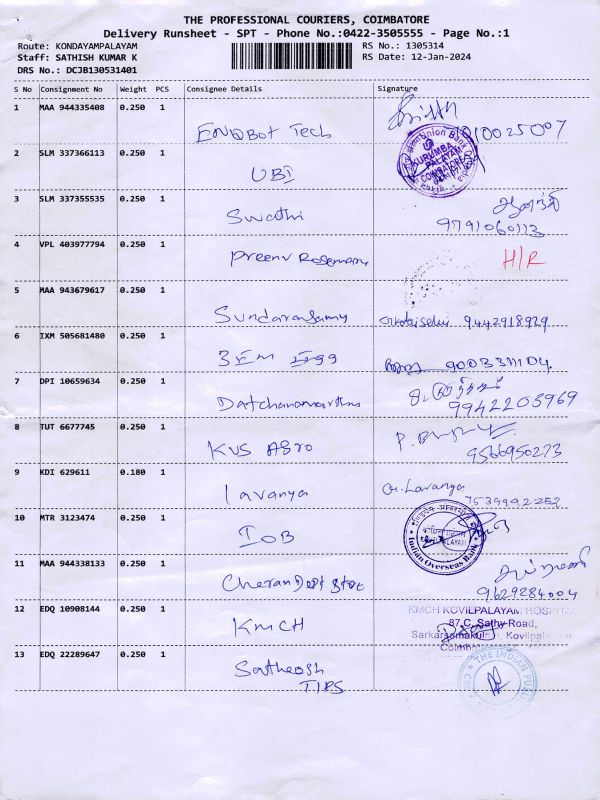 THE PROFESSIONAL COURIERS, COIMBATORE
Delivery Runsheet - SPT - Phone No.:0422-3505555 - Page No.:1
Route: KONDAYAMPALAYAM RS No.: 1305314
Staff: SATHISH KUMAR K RS Date: 12-Jan-2024
DRS No.: DCJB130531401
S No Consignment No Weight PCS Consignee Details Signature
1 MAA 944335408 0.250 1
ENQBot Tech
2 SLM 337366113 0.250 1 Union Bank
UBI
3 SLM 337355535 0.250 1
Swathi 9791060113
4 VPL 403977794 0.250 1 H/R
5 MAA 943679617 0.250 1
9442918929
6 IXM 505681480 0.250 1
7 DPI 10659634 0.250 1
9942205969
8 TUT 6677745 0.250 1
KVS Agro 9566950273
9 KDI 629611 0.180 1
lavanya Lavanya
10 MTR 3123474 0.250 1
IOB Indian Overseas Bank
11 MAA 944338133 0.250 1
9629284004
12 EDQ 10908144 0.250 1 KMCH KOVILPALAYAM HOSPITAL
KMCH 87,C, Sathy Road,
13 EDQ 22289647 0.250 1
Satheesh THE INDIAN
TIPS